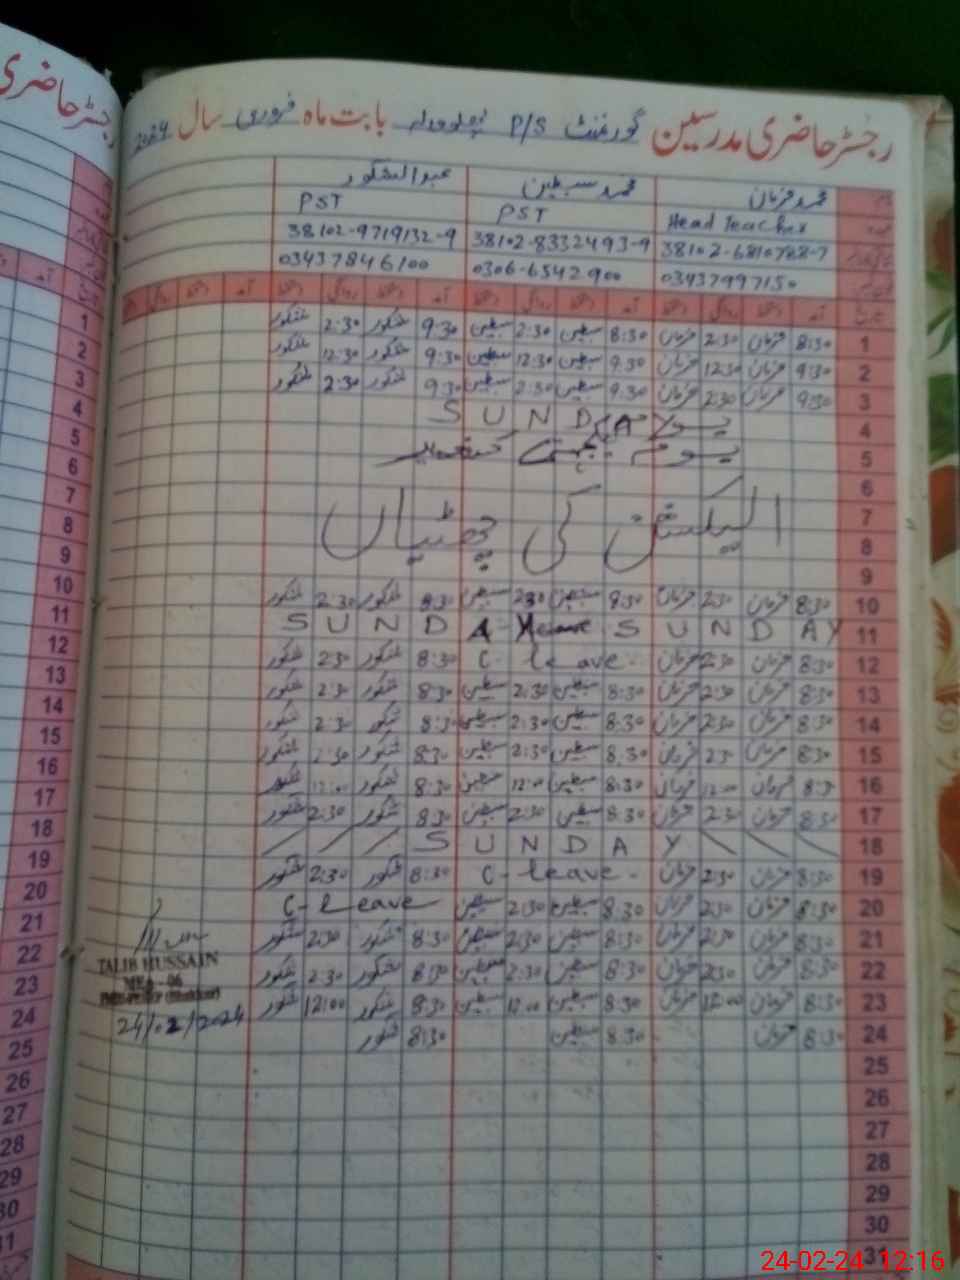 رجسٹر حاضری مدرسین گورنمنٹ P/S بابت ماہ فروری سال 2024
محمد فرمان محمد سبطین عبدالشکور
Head Teacher PST PST
38102-6810788-7 38102-8332493-9 38102-9719132-9
03437997150 0306-6542900 03437846100
1 8:30 فرمان 2:30 فرمان 8:30 سبطین 2:30 سبطین 9:30 شکور 2:30 شکور 1
2 9:30 فرمان 12:30 فرمان 9:30 سبطین 12:30 سبطین 9:30 شکور 12:30 شکور 2
3 9:30 فرمان 2:30 فرمان 9:30 سبطین 2:30 سبطین 9:30 شکور 2:30 شکور 3
4 SUNDAY 4
5 یوم یکجہتی کشمیر 5
6 6
7 الیکشن کی چھٹیاں 7
8 8
9 9
10 8:30 فرمان 2:30 فرمان 8:30 سبطین 2:30 سبطین 8:30 شکور 2:30 شکور 10
11 SUNDAY SUNDAY 11
12 8:30 فرمان 2:30 فرمان C-leave 8:30 شکور 2:30 شکور 12
13 8:30 فرمان 2:30 فرمان 8:30 سبطین 2:30 سبطین 8:30 شکور 2:30 شکور 13
14 8:30 فرمان 2:30 فرمان 8:30 سبطین 2:30 سبطین 8:30 شکور 2:30 شکور 14
15 8:30 فرمان 2:30 فرمان 8:30 سبطین 2:30 سبطین 8:30 شکور 2:30 شکور 15
16 8:30 فرمان 12:00 فرمان 8:30 سبطین 12:00 سبطین 8:30 شکور 12:00 شکور 16
17 8:30 فرمان 2:30 فرمان 8:30 سبطین 2:30 سبطین 8:30 شکور 2:30 شکور 17
18 SUNDAY 18
19 8:30 فرمان 2:30 فرمان C-leave 8:30 شکور 2:30 شکور 19
20 8:30 فرمان 2:30 فرمان 8:30 سبطین 2:30 سبطین C-Leave 20
21 8:30 فرمان 2:30 فرمان 8:30 سبطین 2:30 سبطین 8:30 شکور 2:30 شکور 21
22 8:30 فرمان 2:30 فرمان 8:30 سبطین 2:30 سبطین 8:30 شکور 2:30 شکور 22
23 8:30 فرمان 12:00 فرمان 8:30 سبطین 12:00 سبطین 8:30 شکور 12:00 شکور 23
24 8:30 فرمان 8:30 سبطین 8:30 شکور 24
25 25
26 26
27 27
28 28
29 29
30 30
31 31
TALIB HUSSAIN
MEA-06
24/02/2024
رجسٹر حاضری
24-02-24 12:16